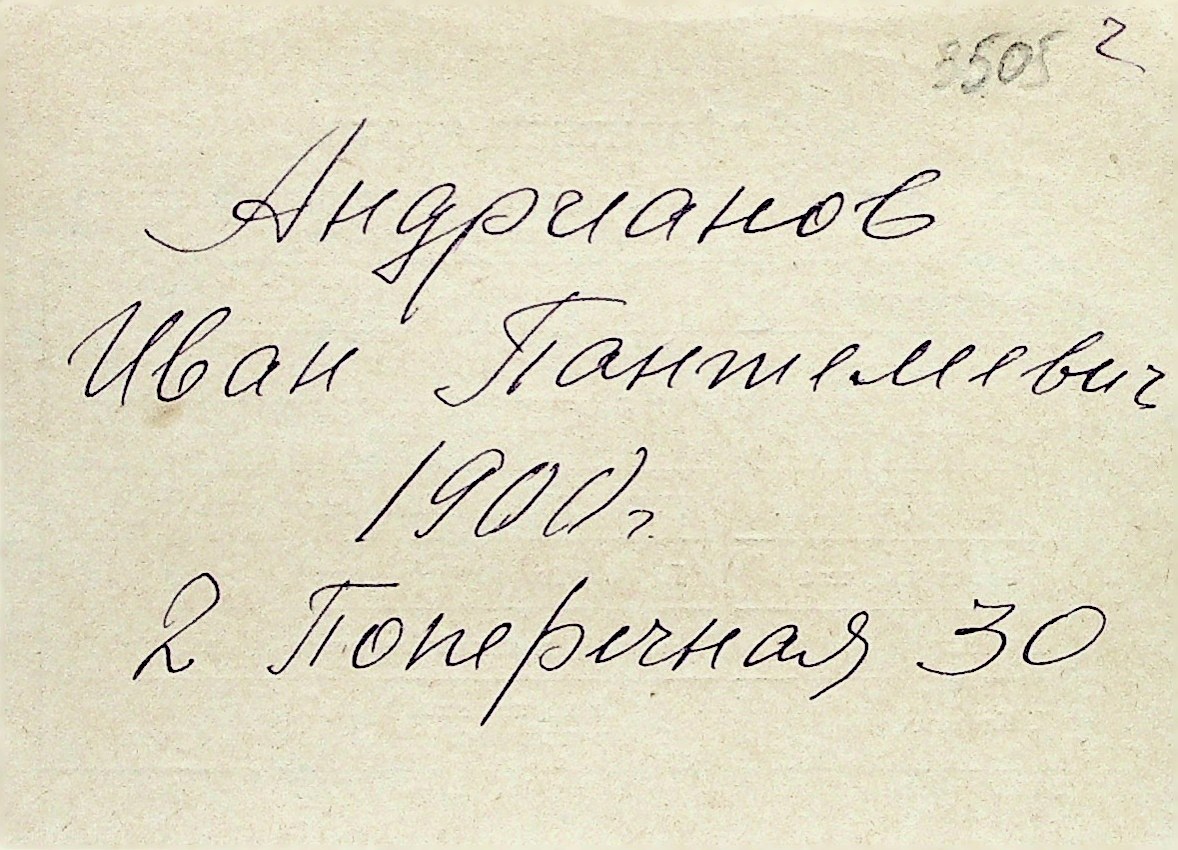 Андрианов
Иван Пантелеевич
1900г.
2 Поперечная 30